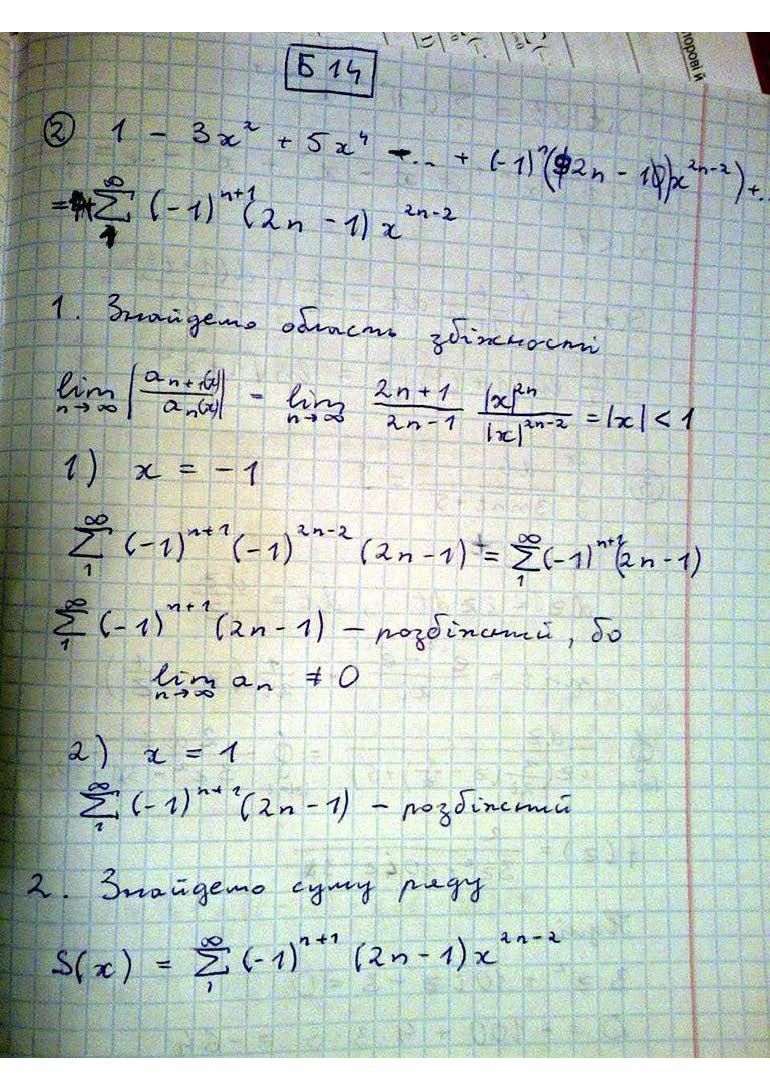 Б 14
② 1 - 3x² + 5x⁴ - ... + (-1)ⁿ(2n - 1)x²ⁿ⁻²) + ..
= ∑₁^∞ (-1)ⁿ⁺¹(2n - 1) x²ⁿ⁻²
1. Знайдемо область збіжності
lim n→∞ |aₙ₊₁(x)/aₙ(x)| = lim n→∞ (2n+1)/(2n-1) |x|²ⁿ/|x|²ⁿ⁻² = |x| < 1
1) x = -1
∑₁^∞ (-1)ⁿ⁺¹(-1)²ⁿ⁻² (2n-1) = ∑₁^∞ (-1)ⁿ⁺¹(2n-1)
∑₁^∞ (-1)ⁿ⁺¹ (2n-1) - розбіжний, бо
lim n→∞ aₙ ≠ 0
2) x = 1
∑₁^∞ (-1)ⁿ⁺¹(2n-1) - розбіжний
2. Знайдемо суму ряду
S(x) = ∑₁^∞ (-1)ⁿ⁺¹ (2n-1) x²ⁿ⁻²